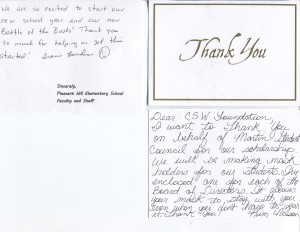 We are so excited to start our
new school year and our new
Battle of the Books! Thank you
so much for helping us get this
started!
Sincerely,
Pleasant Hill Elementary School
Faculty and Staff
Thank You
Dear CSW Foundation,
I want to Thank You
on behalf of Martin Student
Council for our scholarship.
We will be making mask
holders for our students. I've
enclosed one for each of the
Board of Directors. It allows
your mask to stay with you
even when you don't have to wear
it. Thank you! Kim